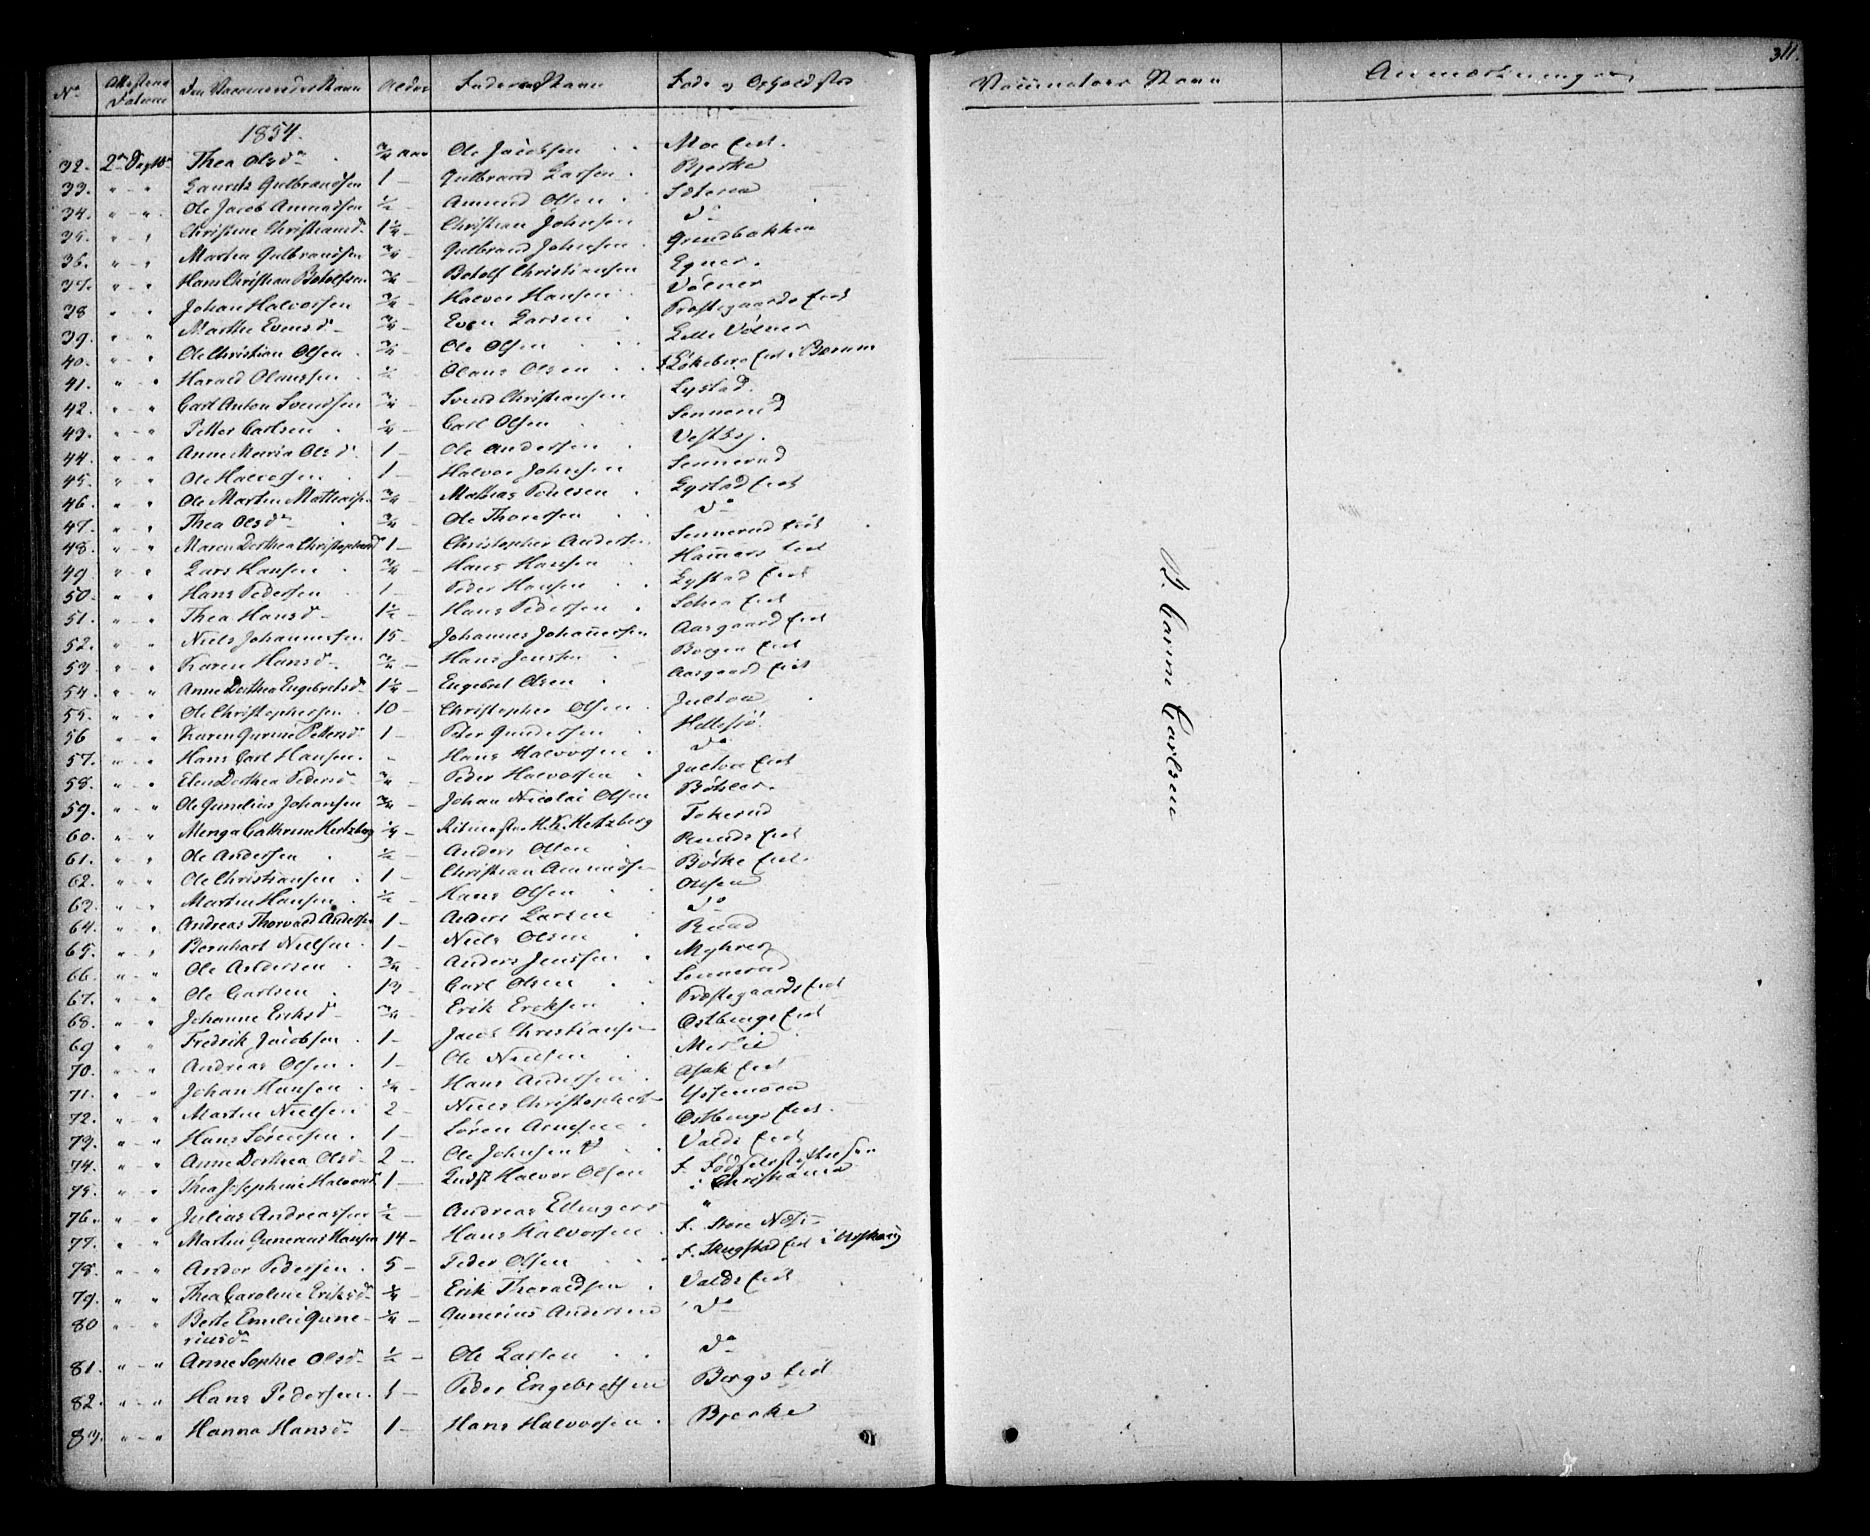 311.
No Attestens Datum Den Vaccineredes Navn Alder Faderens Navn Føde og Opholdsted Vaccinators Navn Anmærkninger
1854.
32. 2n Septbr Thea Olsdn ¾ aar Ole Jacobsen Moe Eiet.
33. " - " Lauritz Gulbrandsen 1 - Gulbrand Larsen Bjerke
34. " - " Ole Jacob Amundsen ½ - Amund Olsen
35. " - " Christine Christiansd 1¼ - Christian Johnsen Do
36. " - " Martin Gulbrandsen ¾ - Gulbrand Johnsen Grindbakken
37. " - " Hans Christian Botolfsen ¾ - Botolf Christiansen Egner.
38 " - " Johan Halvorsen ¾ - Halvor Hansen Vølner
39. " - " Marthe Evensd ¾ - Even Larsen Præstegaards Eiet
40. " - " Ole Christian Olsen ¾ - Ole Olsen Lille Vølner
41. " - " Harald Olaussen ½ - Olaus Olsen Eiet i Bærum
42. " - " Carl Anton Svendsen ¾ - Svend Christiansen Lystad.
43. " - " Petter Carlsen ¼ - Carl Olsen Sennerud
44. " - " Anne Maria Olsd 1 - Ole Andersen Vestby.
45. " - " Ole Halvorsen 1 - Halvor Johnsen Sennerud
46. " - " Ole Martin Mathiassen ¾ - Mathias Poulsen Lystad Eiet
47. " - " Thea Olsdn ¾ - Ole Thoresen Do
48. " - " Maren Dorthea Christophersd 1 - Christopher Andersen Sennerud Eiet
49. " - " Lars Hansen ¾ - Hans Hansen Hammers Eiet
50. " - " Hans Pedersen 1 - Peder Hansen Lystad Eiet
51. " - " Thea Hansd 1½ - Hans Pedersen Eiet
52. " - " Niels Johannessen 15 - Johannes Johannessen Aasgaard Eiet
53. " - " Karen Hansd ¾ - Hans Jensen Borgen Eiet
54. " - " Anne Dorthea Engebretsd 1¼ - Engebret Olsen Aasgaard Eiet
55. " - " Ole Christophersen 10 - Christopher Olsen Jultoa
56 " - " Karen Gurine Petersd 1 - Peder Gundersen Hellesjø.
57. " - " Hans Carl Hansen. - Hans Halvorsen Do
58. " - " Elen Dorthea Pedersd ¾ - Peder Halvorsen Jultoa Eiet
59. " - " Ole Gunelius Johansen ¾ - Johan Nicolai Olsen Bøhler.
60. " - " Menga Cathrine Hertzberg ¼ - Ritmester Hertzberg Tokerud
61. " - " Ole Andersen ½ - Anders Olsen Ruuds Eiet
62. " - " Ole Christiansen 1 - Christian Amundsen Børke Eiet.
63. " - " Martin Hansen ½ - Hans Olsen
64. " - " Andreas Thorvald Andersen 1 - Anders Larsen Do
65. " - " Bernhart Nielsen 1 - Niels Olsen Ruud
66. " - " Ole Andersen ¾ - Anders Jensen Myhrer
67. " - " Ole Carlsen 13 - Carl Olsen Sennerud
68. " - " Johanne Eriksd ¾ - Erik Eriksen Præstegaards Eiet
69 " - " Fredrik Jacobsen 1 - Jacob Christiansen Østbyengs Eiet
70. " - " Andreas Olsen 1 - Ole Nielsen Merlie
71. " - " Johan Hansen ¼ - Hans Andersen Asak Eiet
72. " - " Martin Nielsen 2 - Niels Christophers
73. " - " Hans Sørensen 1 - Søren Arnesen Østbyengs Eiet.
74. " - " Anne Dorthea Olsd 2 - Ole Johnsen Valds Eiet
75. " - " Thea Josephine Halvorsd 1 - Halvor Olsen F. Fødselsstiftelsen i Christiania
76. " - " Julius Andreassen ½ - Andreas "
77. " - " Martin Gunerius Hansen 14 - Hans Halvorsen F. Store Næs
78. " - " Andor Pedersen 5 - Peder Olsen F. Skugstad Eiet i Urskoug
79. " - " Thea Caroline Eriksdn ¼ - Erik Thoraldsen Valds Eiet
80 " - " Berte Emilie Guneriusdn ¼ - Gunerius Andersen Do
81. " - " Anne Sophie Olsd ½ - Ole Larsen Do
82. " - " Hans Pedersen 1 - Peder Engebretsen Bergs Eiet
83. " - " Hanna Hansd 1 - Hans Halvorsen Bjerke
Carlsen